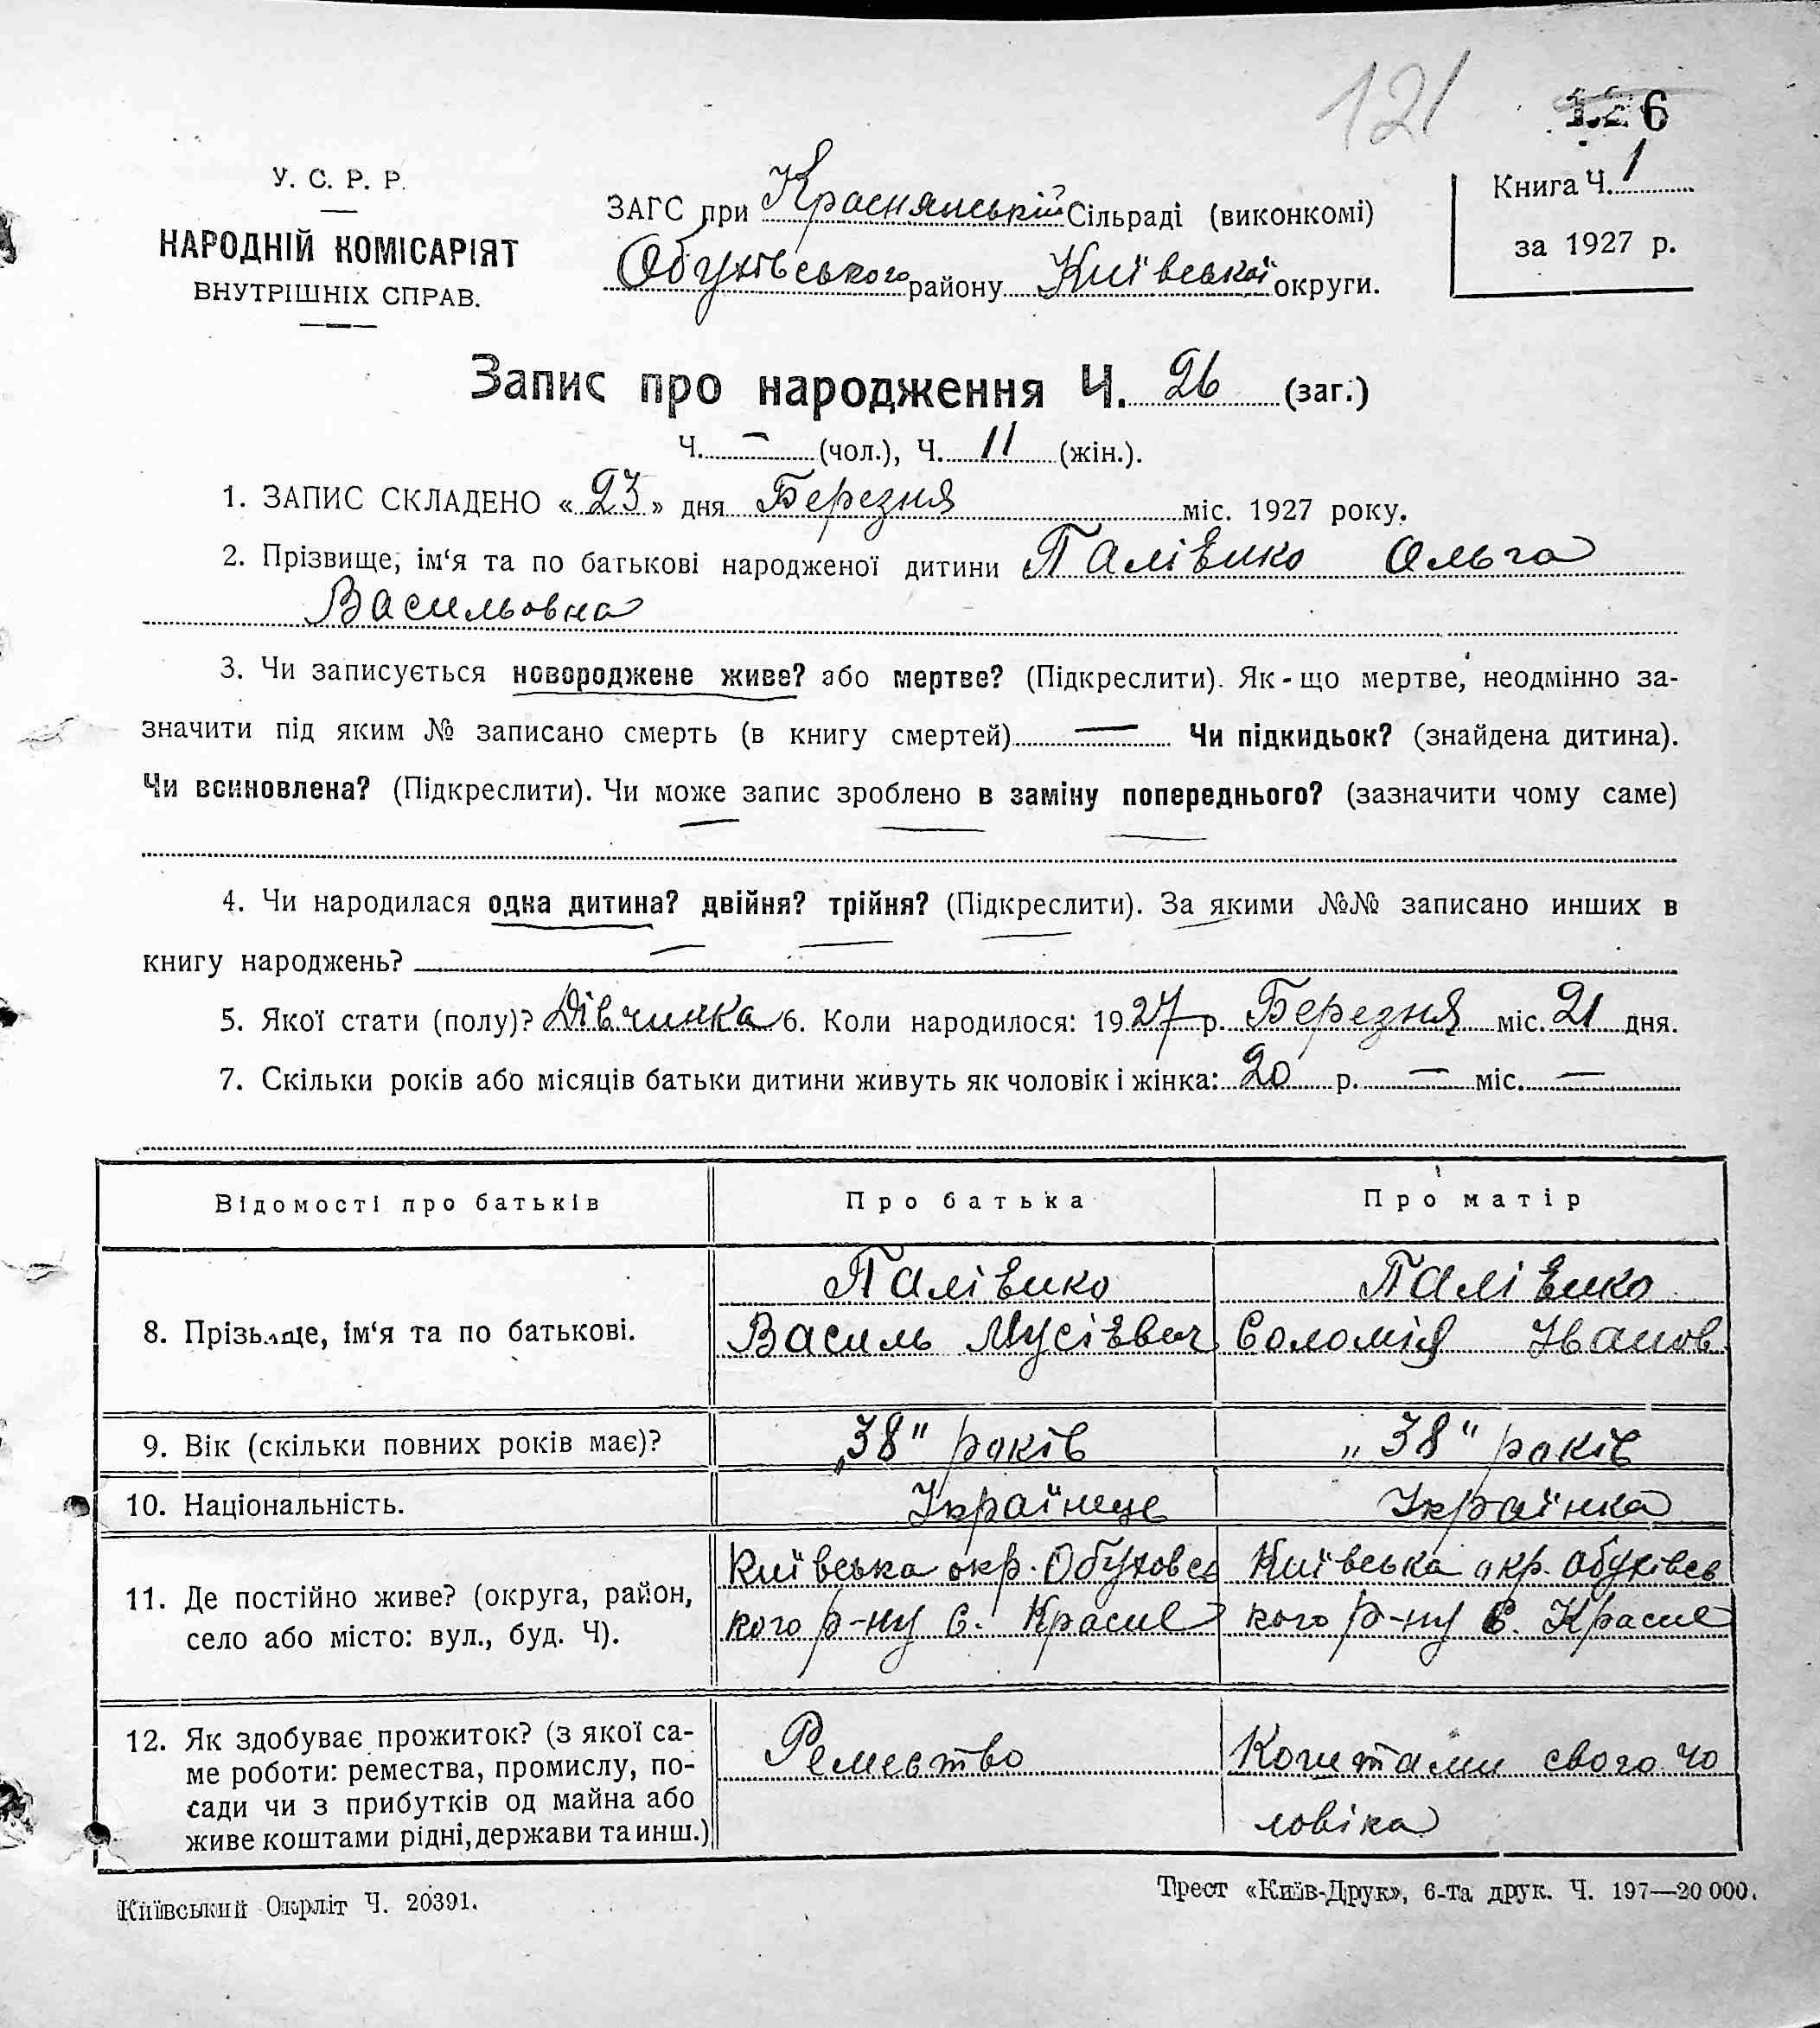 121
126
У. С. Р. Р.
НАРОДНІЙ КОМІСАРІЯТ
ВНУТРІШНІХ СПРАВ.
ЗАГС при Краснянській Сільраді (виконкомі)
Обухівського району Київської округи.
Книга Ч. 1
за 1927 р.
Запис про народження Ч. 26 (заг.)
Ч. — (чол.), Ч. 11 (жін.).
1. ЗАПИС СКЛАДЕНО «23» дня Березня міс. 1927 року.
2. Прізвище, ім‘я та по батькові народженої дитини Палівико Ольга
Васильовна
3. Чи записується новороджене живе? або мертве? (Підкреслити). Як-що мертве, неодмінно за-
значити під яким № записано смерть (в книгу смертей) — Чи підкидьок? (знайдена дитина).
Чи всиновлена? (Підкреслити). Чи може запис зроблено в заміну попереднього? (зазначити чому саме)
4. Чи народилася одна дитина? двійня? трійня? (Підкреслити). За якими №№ записано инших в
книгу народжень?
5. Якої стати (полу)? Дівчинка 6. Коли народилося: 1927 р. Березня міс. 21 дня.
7. Скільки років або місяців батьки дитини живуть як чоловік і жінка: 20 р. — міс. —
Відомості про батьків
Про батька
Про матір
8. Прізвище, ім‘я та по батькові.
Палівико
Василь Мусієвич
Палівико
Соломія Іванов
9. Вік (скільки повних років має)?
„38“ років
„38“ років
10. Національність.
Українець
Українка
11. Де постійно живе? (округа, район,
село або місто: вул., буд. Ч).
Київська окр. Обуховсь
кого р-ну с. Красне
Київська окр. Обухівсь
кого р-ну с. Красне
12. Як здобуває прожиток? (з якої са-
ме роботи: ремества, промислу, по-
сади чи з прибутків од майна або
живе коштами рідні, держави та инш.)
Ремество
Коштами свого чо
ловіка
Київський Окрліт Ч. 20391.
Трест «Київ-Друк», 6-та друк. Ч. 197—20 000.